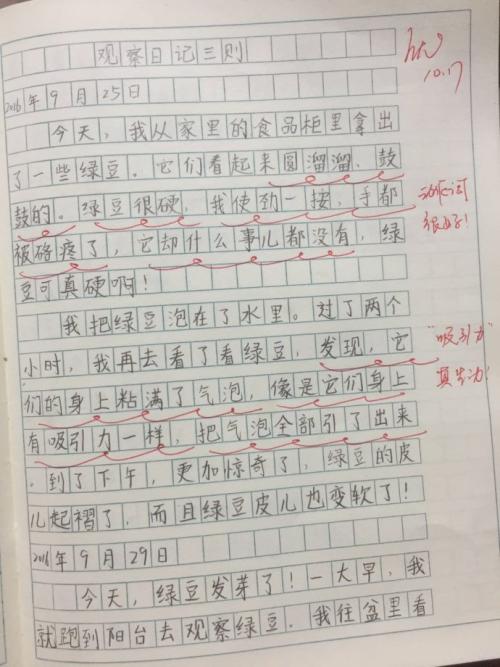 观察日记三则
10.17
2016年9月25日
今天，我从家里的食品柜里拿出
了一些绿豆。它们看起来圆溜溜、鼓
鼓的。绿豆很硬，我使劲一按，手都
动作词
很好！
被硌疼了，它却什么事儿都没有，绿
豆可真硬啊！
我把绿豆泡在了水里。过了两个
小时，我再去看了看绿豆，发现，它
"吸引力"
真生动！
们的身上粘满了气泡，像是它们身上
有吸引力一样，把气泡全部引了出来
.到了下午，更加惊奇了，绿豆的皮
儿起褶了，而且绿豆皮儿也变软了！
2016年9月29日
今天，绿豆发芽了！一大早，我
就跑到阳台去观察绿豆。我往盆里看